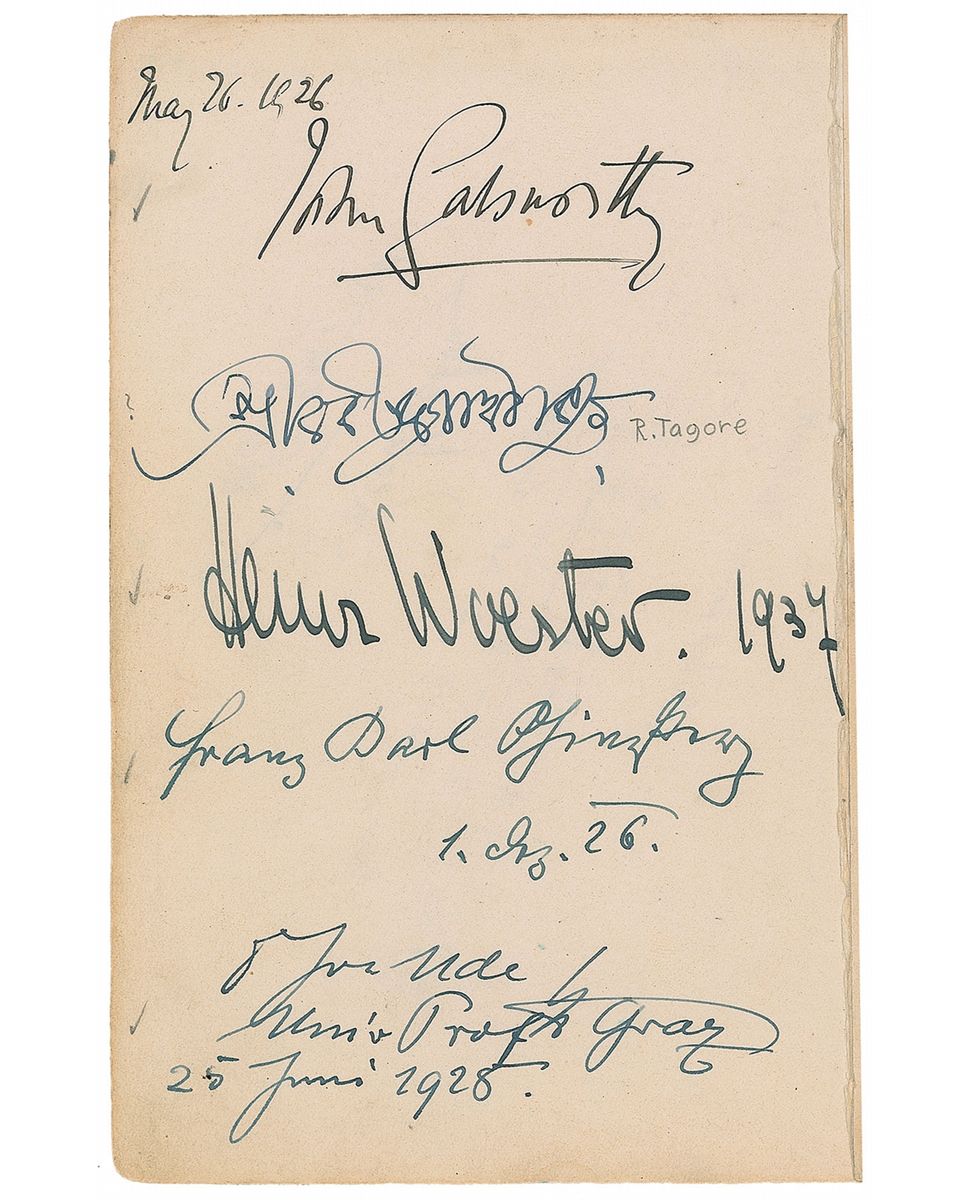 May 26. 1926
John Galsworthy
শ্রীরবীন্দ্রনাথ ঠাকুর
R. Tagore
Heinz Woester. 1937
Franz Karl Ginzkey
1. Dez. 26.
Joh Ude
Univ Prof Graz
25 Juni 1928.